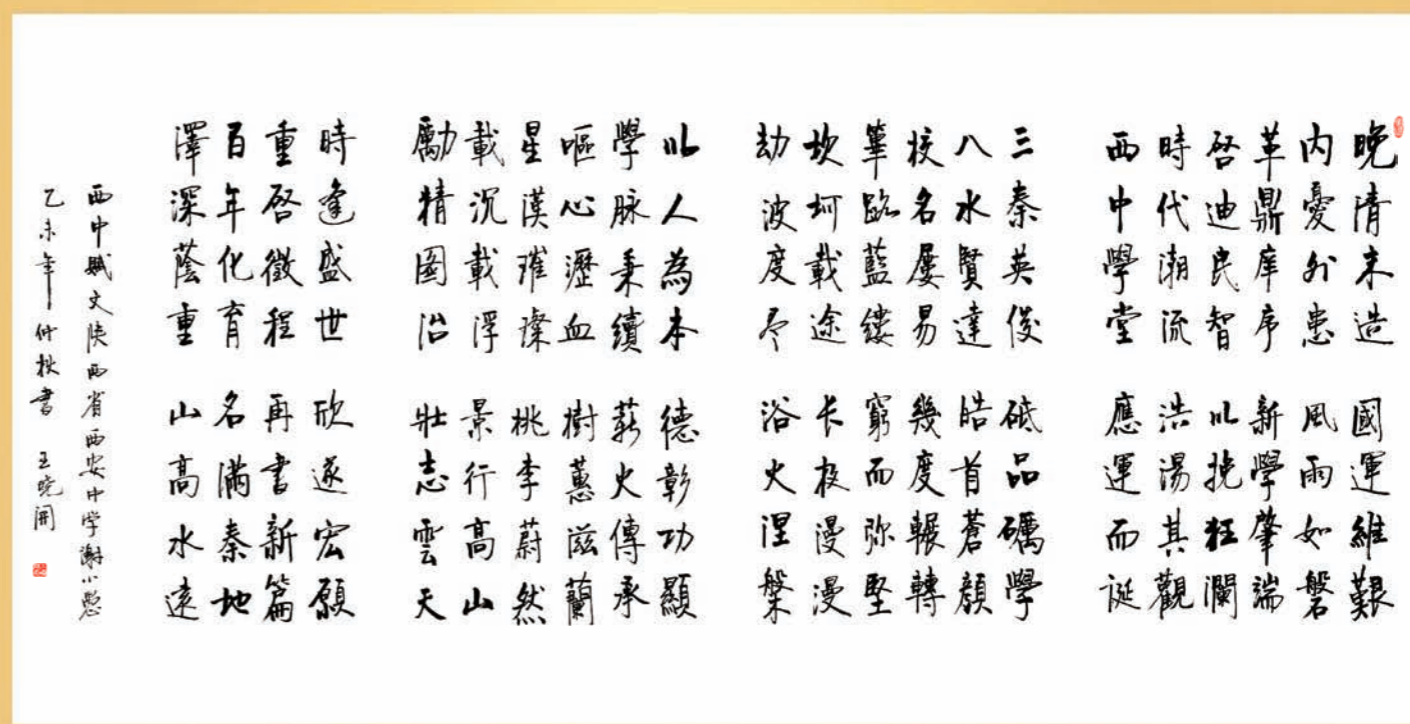 晚清末造 國運維艱
内憂外患 風雨如磐
革鼎庠序 新學肇端
啓迪民智 以挽狂瀾
時代潮流 浩湯其觀
西中學堂 應運而誕
三秦英俊 砥品礪學
八水賢達 皓首蒼顔
校名屢易 幾度輾轉
篳路藍縷 窮而弥堅
坎坷載途 长夜漫漫
劫波度尽 浴火涅槃
以人為本 德彰功顯
學脉秉續 薪火傳承
嘔心瀝血 樹蕙滋蘭
星漢璀璨 桃李蔚然
載沉載浮 景行高山
勵精图治 壯志雲天
時逢盛世 欣遂宏願
重啓徵程 再書新篇
百年化育 名滿秦地
澤深蔭重 山高水遠
西中赋文陕西省西安中学謝小愚
乙未年仲秋書 王晓開